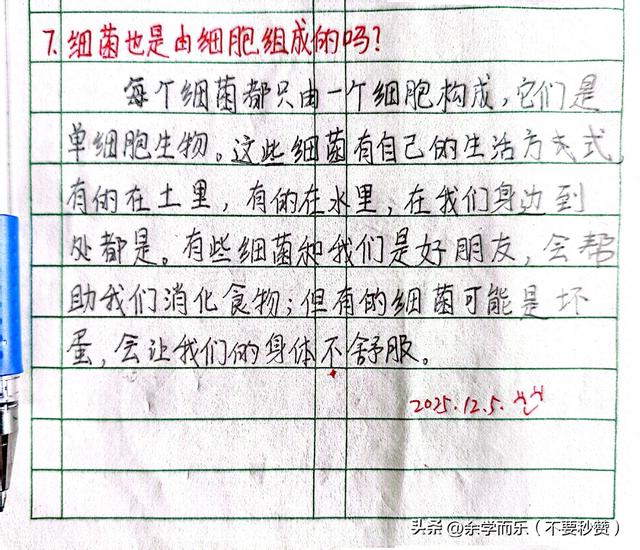 7.细菌也是由细胞组成的吗?
每个细菌都只由一个细胞构成,它们是
单细胞生物。这些细菌有自己的生活方式
有的在土里,有的在水里,在我们身边到
处都是。有些细菌和我们是好朋友,会帮
助我们消化食物;但有的细菌可能是坏
蛋,会让我们的身体不舒服。
2025.12.5.
头条 @余学而乐(不要秒赞)